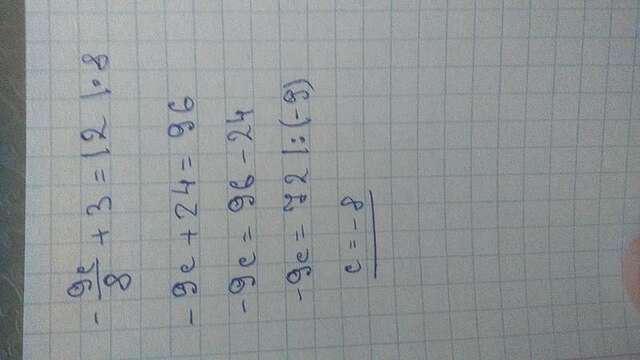 - 9c/8 + 3 = 12 |· 8
- 9c + 24 = 96
- 9c = 96 - 24
- 9c = 72 |: (-9)
c = - 8